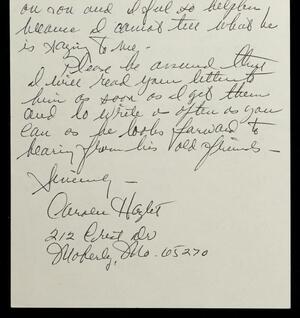 on son and I feel so helpless
because I cannot tell what he
is saying to me.
Please be assured that
I will read your letters to
him as soon as I get them
and to write as often as you
can as he looks forward to
hearing from his old friends—
Sincerely—
212 Crest Dr
Moberly, Mo. 65270